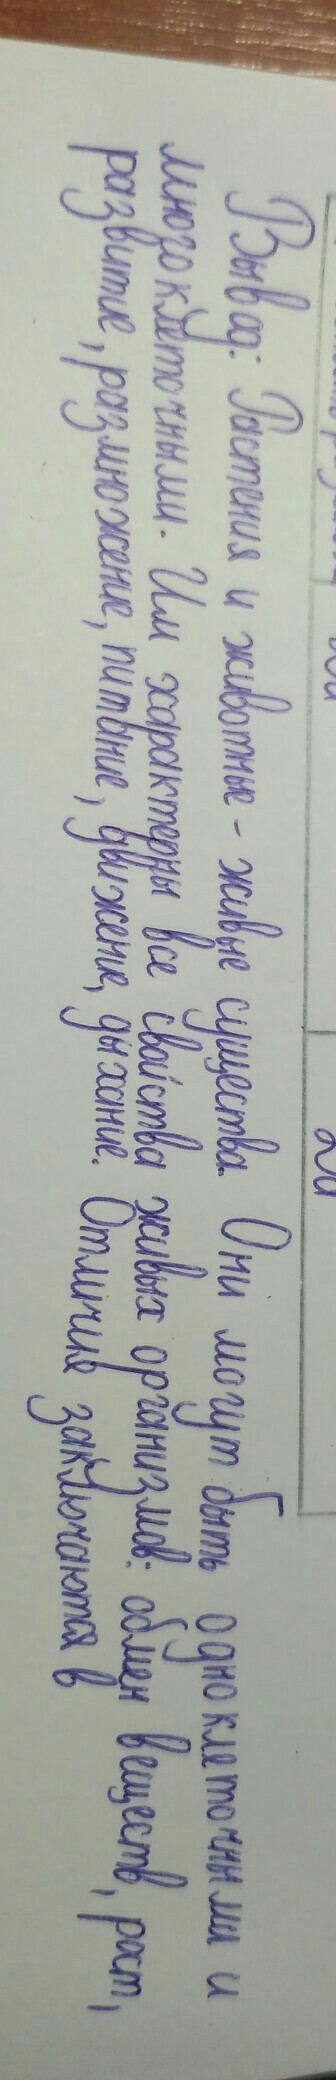 Вывод: Растения и животные - живые существа. Они могут быть одноклеточными и
многоклеточными. Им характерны все свойства живых организмов: обмен веществ, рост,
развитие, размножение, питание, движение, дыхание. Отличия заключаются в